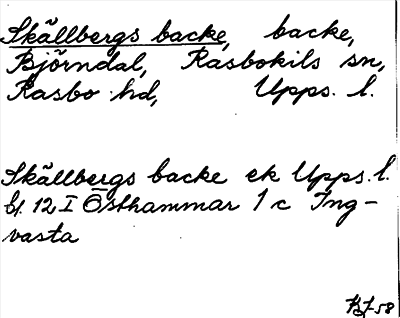 Skällbergs backe, backe,
Björndal, Rasbokils sn,
Rasbo hd, Upps. l.
Skällbergs backe ek Upps. l.
bl. 12 I Östhammar 1 c Ing-
vasta
KJ-58